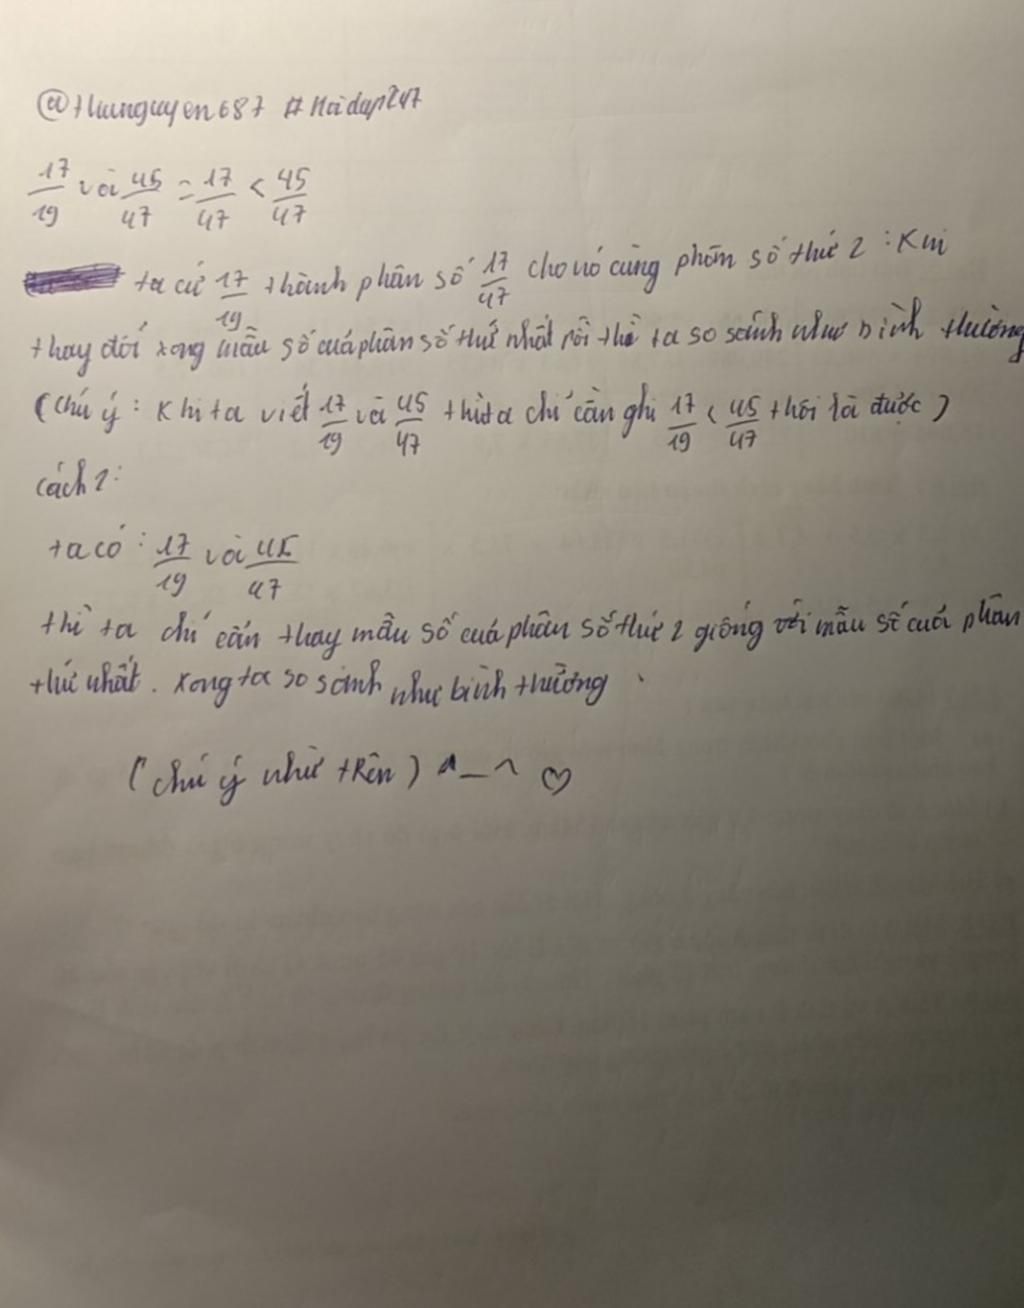 @thunguyen687 #Hoidap247
17/19 và 45/47 = 17/47 < 45/47
ta cứ 17/19 thành phân số 17/47 cho nó cùng phân số thứ 2 : Khi
thay đổi xong mẫu số cuả phân số thứ nhất rồi thì ta so sánh như bình thường
(Chú ý : Khi ta viết 17/19 và 45/47 thì ta chỉ cần ghi 17/19 < 45/47 thôi là được)
cách 2:
ta có : 17/19 và 45/47
thì ta chỉ cần thay mẫu số cuả phân số thứ 2 giống với mẫu số cuả phân
thứ nhất. xong ta so sánh như bình thường
(chú ý như trên) ^_^ ♡